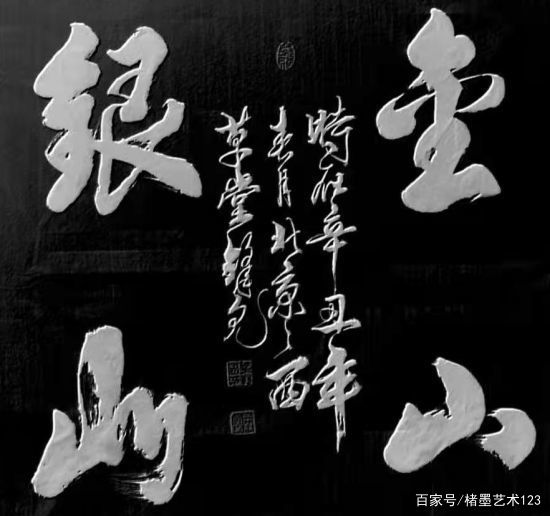 金山
時在辛丑年
春月北京之西
草堂
銀山
百家号/楮墨艺术123